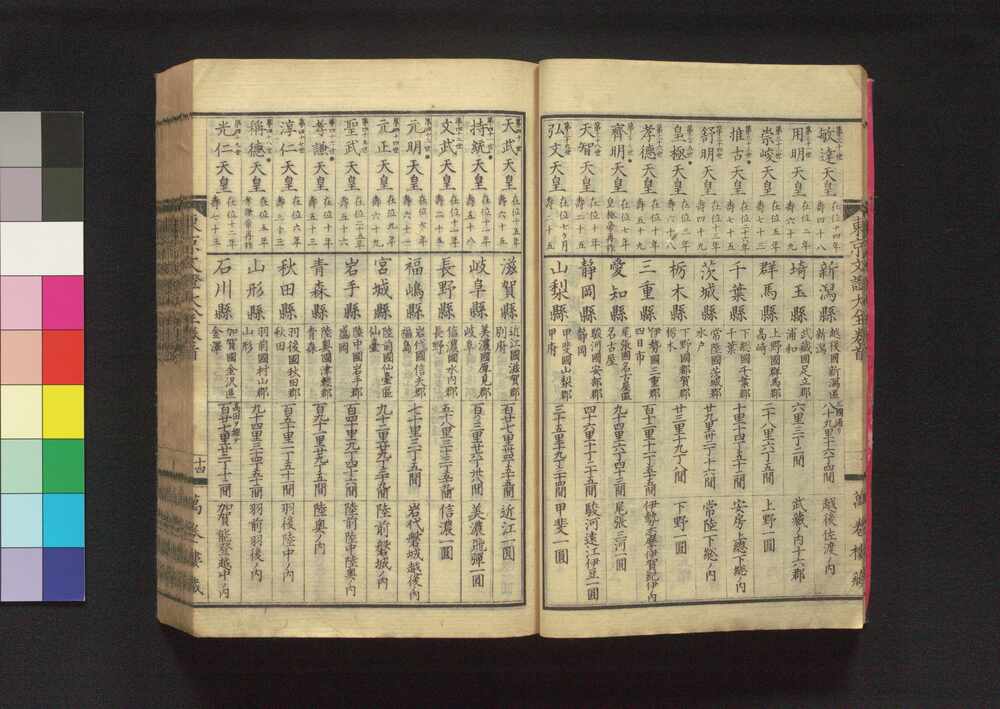 敏達天皇 在位十四年 壽四十八
用明天皇 在位二年 壽六十九
崇峻天皇 在位五年 壽七十三
推古天皇 壽七十五
舒明天皇 在位十三年 壽四十九
皇極天皇 在位三年 壽六十八
孝德天皇 在位十年
齊明天皇 皇極帝再祚
天智天皇 在位十年
弘文天皇 壽二十五
新潟縣 越後國新潟區 新潟 八十九里十六丁四間 越後佐渡ノ內
埼玉縣 武藏國足立郡 浦和 六里三丁二間 武藏ノ內十六郡
群馬縣 上野國群馬郡 高崎 二十八里六丁五間 上野一圓
千葉縣 下総國千葉郡 千葉 十里十四丁五十二間 安房上總下総ノ內
茨城縣 常陸國茨城郡 水戶 廿九里卅二丁十六間 常陸下総ノ內
栃木縣 下野國都賀郡 栃木 廿三里十九丁八間 下野一圓
三重縣 伊勢國三重郡 四日市 伊勢志摩伊賀紀伊內
愛知縣 尾張國名古屋區 名古屋 九十四里六丁四十三間 尾張三河一圓
靜岡縣 駿河國安部郡 靜岡 四十六里十丁二十五間 駿河遠江伊豆一圓
山梨縣 甲斐國山梨郡 甲府 三十五里十九丁二十四間 甲斐一圓
天武天皇 在位十五年 壽六十五
持統天皇 在位十一年 壽五十八
文武天皇 在位十一年 壽二十五
元明天皇 在位七年 壽六十一
元正天皇 在位九年 壽六十九
聖武天皇 在位二十五年 壽五十六
孝謙天皇 在位十年 壽五十三
淳仁天皇 在位六年 壽三十三
稱德天皇 在位五年 孝謙帝再祚
光仁天皇 在位十二年 壽七十三
滋賀縣 近江國滋賀郡 別府 近江一圓
岐阜縣 美濃國厚見郡 岐阜 美濃飛彈一圓
長野縣 信濃國水內郡 長野 信濃一圓
福嶋縣 岩代國信夫郡 福島 岩代磐城越後ノ內
宮城縣 陸前國仙臺區 仙臺 陸前磐城ノ內
岩手縣 陸中國岩手郡 盛岡 陸前陸中陸奧ノ內
青森縣 陸奧國津輕郡 青森 陸奧ノ內
秋田縣 羽後國秋田郡 秋田 羽後陸中ノ內
山形縣 羽前國村山郡 山形 九十四里三十四丁五十二間 羽前羽後ノ內
石川縣 加賀國金沢區 金澤 加賀能登越中ノ內
東京文證大全卷首
十四
萬卷樓藏